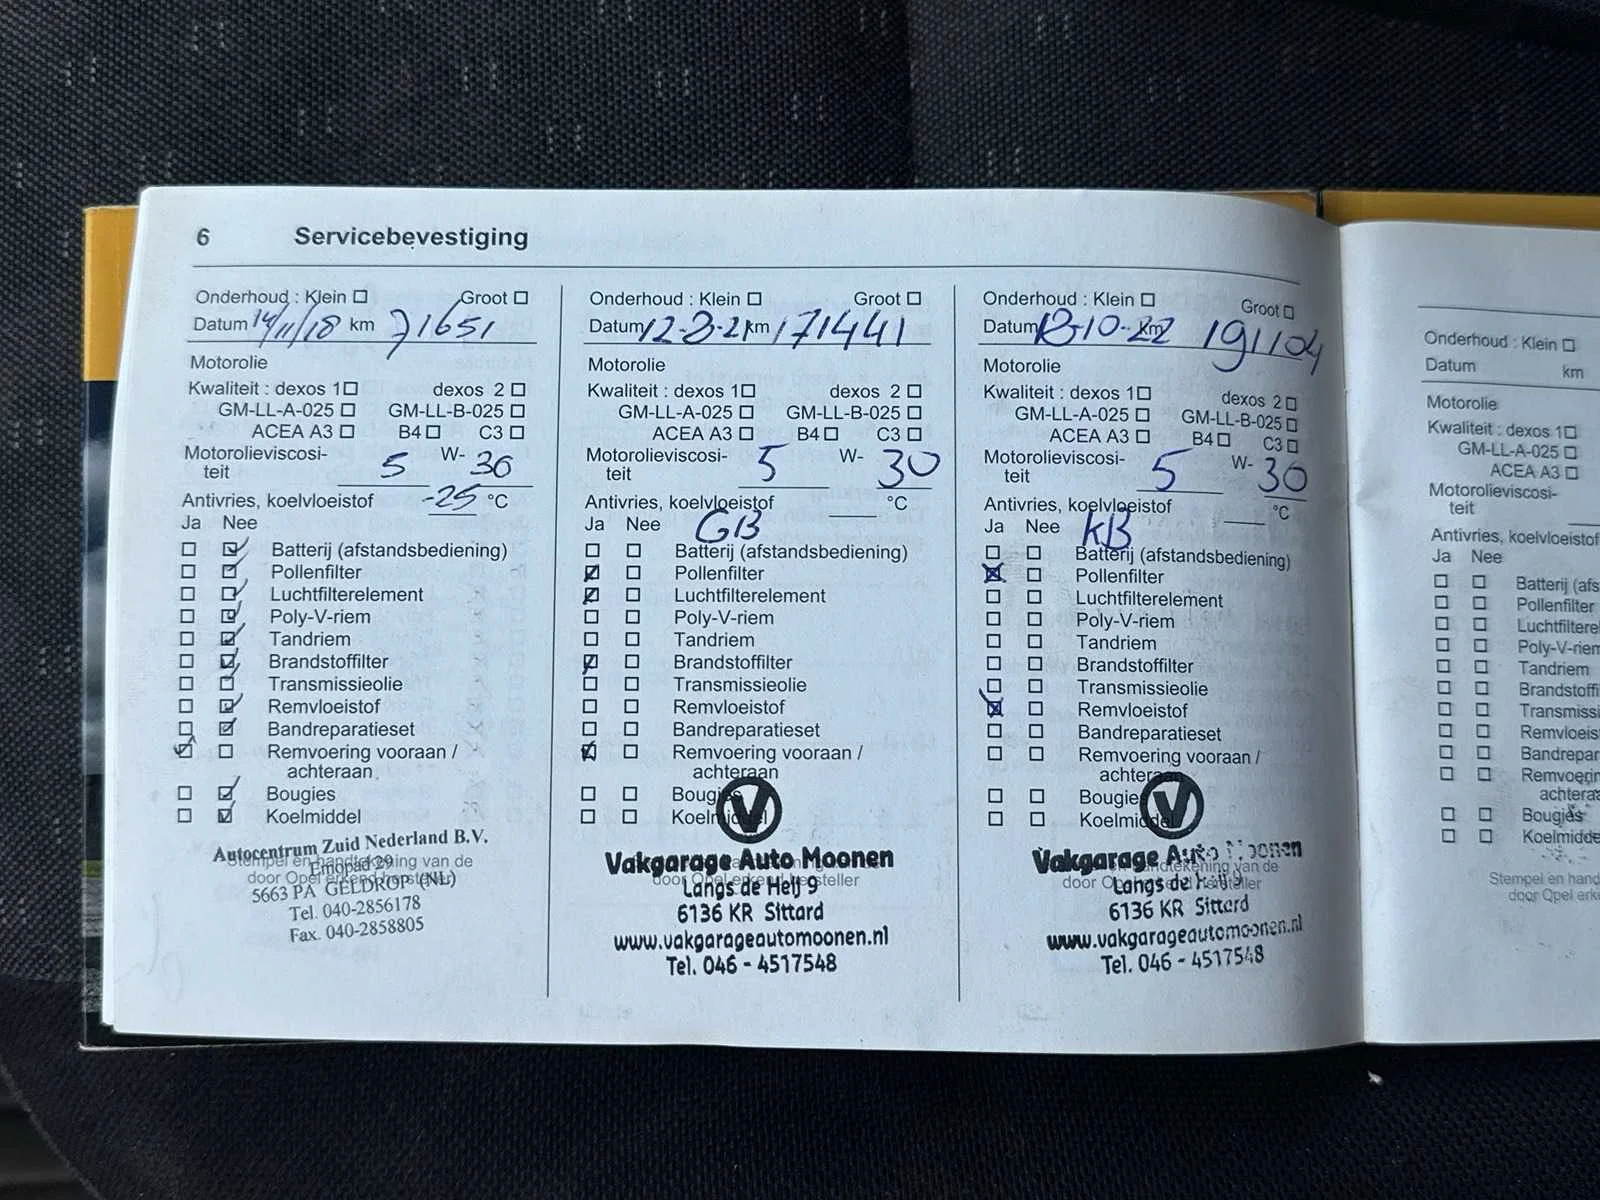 6 Servicebevestiging
Onderhoud : Klein Groot
Datum 14/11/18 km 71651
Motorolie
Kwaliteit : dexos 1 dexos 2
GM-LL-A-025 GM-LL-B-025
ACEA A3 B4 C3
Motorolieviscosi-
teit 5 W- 30
Antivries, koelvloeistof -25 °C
Ja Nee
Batterij (afstandsbediening)
Pollenfilter
Luchtfilterelement
Poly-V-riem
Tandriem
Brandstoffilter
Transmissieolie
Remvloeistof
Bandreparatieset
Remvoering vooraan /
achteraan
Bougies
Koelmiddel
Autocentrum Zuid Nederland B.V.
Stempel en handtekening van de
Emopad 29
door Opel erkend hersteller
5663 PA GELDROP (NL)
Tel. 040-2856178
Fax. 040-2858805
Onderhoud : Klein Groot
Datum 12-8-21 km 171441
Motorolie
Kwaliteit : dexos 1 dexos 2
GM-LL-A-025 GM-LL-B-025
ACEA A3 B4 C3
Motorolieviscosi-
teit 5 W- 30
Antivries, koelvloeistof °C
Ja Nee GB
Batterij (afstandsbediening)
Pollenfilter
Luchtfilterelement
Poly-V-riem
Tandriem
Brandstoffilter
Transmissieolie
Remvloeistof
Bandreparatieset
Remvoering vooraan /
achteraan
Bougies
Koelmiddel
V
Vakgarage Auto Moonen
door Opel erkend hersteller
Langs de Heij 9
6136 KR Sittard
www.vakgarageautomoonen.nl
Tel. 046 - 4517548
Onderhoud : Klein Groot
Datum 18-10-22 km 191104
Motorolie
Kwaliteit : dexos 1 dexos 2
GM-LL-A-025 GM-LL-B-025
ACEA A3 B4 C3
Motorolieviscosi-
teit 5 W- 30
Antivries, koelvloeistof °C
Ja Nee KB
Batterij (afstandsbediening)
Pollenfilter
Luchtfilterelement
Poly-V-riem
Tandriem
Brandstoffilter
Transmissieolie
Remvloeistof
Bandreparatieset
Remvoering vooraan /
achteraan
Bougies
Koelmiddel
V
Vakgarage Auto Moonen
en handtekening van de
door Opel erkend hersteller
Langs de Heij 9
6136 KR Sittard
www.vakgarageautomoonen.nl
Tel. 046 - 4517548
Onderhoud : Klein
Datum km
Motorolie
Kwaliteit : dexos 1
GM-LL-A-025
ACEA A3
Motorolieviscosi-
teit
Antivries, koelvloeistof
Ja Nee
Batterij (afs
Pollenfilter
Luchtfiltere
Poly-V-riem
Tandriem
Brandstoffi
Transmiss
Remvloeis
Bandrepar
Remvoerin
achtera
Bougies
Koelmidde
Stempel en hand
door Opel erke